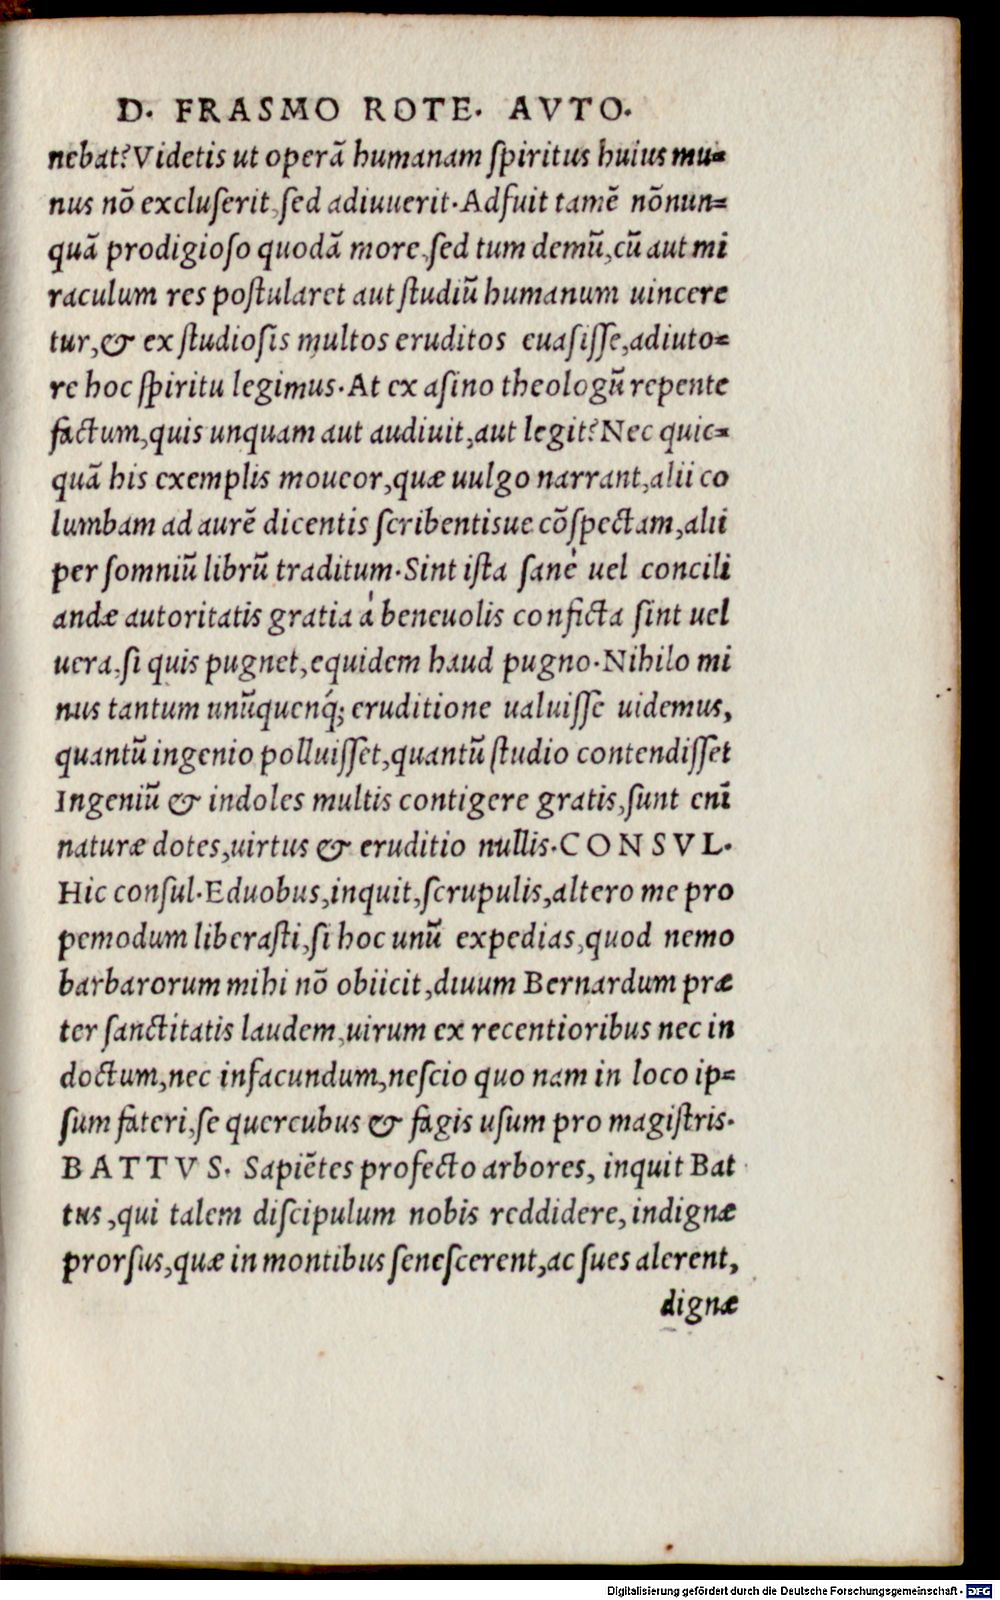 D. FRASMO ROTE. AVTO.
nebat? Videtis ut operā humanam ſpiritus huius mu=
nus nō excluſerit, ſed adiuuerit. Adfuit tamē nōnun=
quā prodigioſo quodā more, ſed tum demū, cū aut mi
raculum res poſtularet aut ſtudiū humanum uincere
tur, & ex ſtudioſis multos eruditos euaſiſſe, adiuto=
re hoc ſpiritu legimus. At ex aſino theologū repente
factum, quis unquam aut audiuit, aut legit? Nec quic=
quā his exemplis moueor, quæ uulgo narrant, alii co
lumbam ad aurē dicentis ſcribentisue cōſpectam, alii
per ſomniū librū traditum. Sint iſta ſanè uel concili
andæ autoritatis gratia à beneuolis conficta ſint uel
uera, ſi quis pugnet, equidem haud pugno. Nihilo mi
nus tantum unūquenq́; eruditione ualuiſſe uidemus,
quantū ingenio polluiſſet, quantū ſtudio contendiſſet
Ingeniū & indoles multis contigere gratis, ſunt enī
naturæ dotes, uirtus & eruditio nullis. CONSVL.
Hic conſul. E duobus, inquit, ſcrupulis, altero me pro
pemodum liberaſti, ſi hoc unū expedias, quod nemo
barbarorum mihi nō obiicit, diuum Bernardum præ
ter ſanctitatis laudem, uirum ex recentioribus nec in
doctum, nec infacundum, neſcio quo nam in loco ip=
ſum fateri, ſe quercubus & fagis uſum pro magiſtris.
BATTVS. Sapiētes profecto arbores, inquit Bat
tus, qui talem diſcipulum nobis reddidere, indignæ
prorſus, quæ in montibus ſeneſcerent, ac ſues alerent,
dignæ
Digitalisierung gefördert durch die Deutsche Forschungsgemeinschaft - DFG